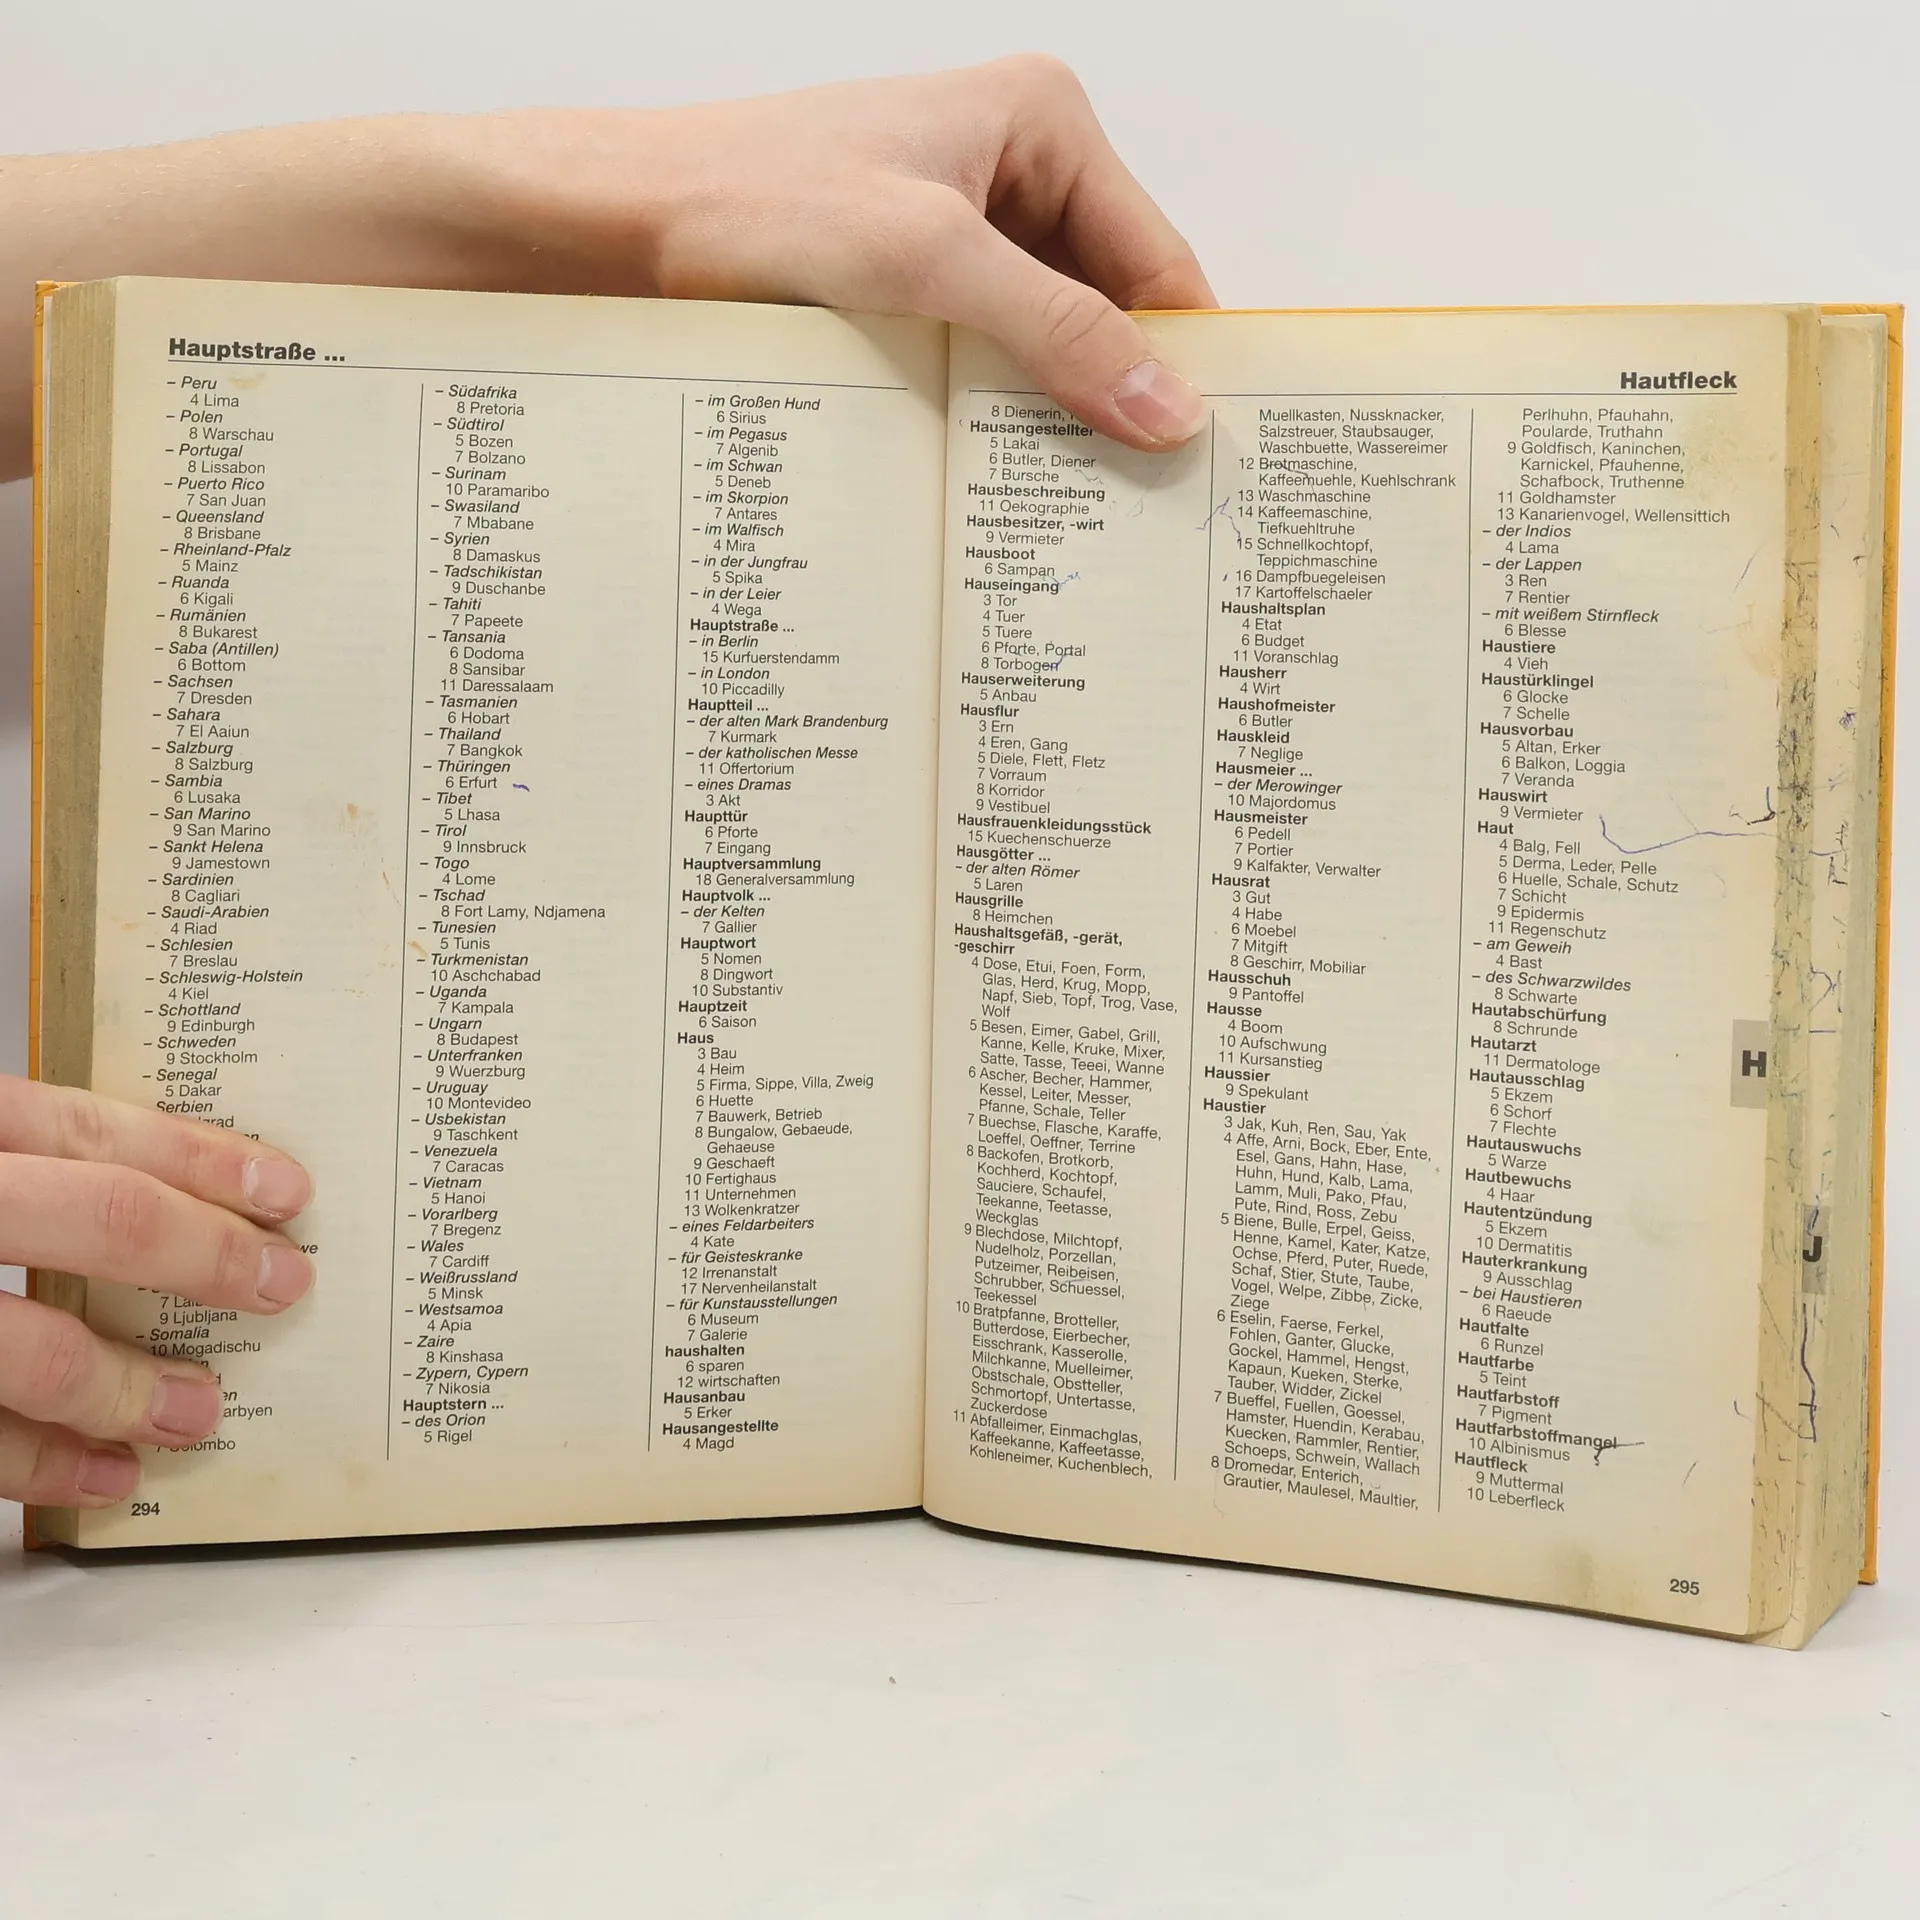 Hauptstraße ...
– Peru
4 Lima
– Polen
8 Warschau
– Portugal
8 Lissabon
– Puerto Rico
7 San Juan
– Queensland
8 Brisbane
– Rheinland-Pfalz
5 Mainz
– Ruanda
6 Kigali
– Rumänien
8 Bukarest
– Saba (Antillen)
6 Bottom
– Sachsen
7 Dresden
– Sahara
7 El Aaiun
– Salzburg
8 Salzburg
– Sambia
6 Lusaka
– San Marino
9 San Marino
– Sankt Helena
9 Jamestown
– Sardinien
8 Cagliari
– Saudi-Arabien
4 Riad
– Schlesien
7 Breslau
– Schleswig-Holstein
4 Kiel
– Schottland
9 Edinburgh
– Schweden
9 Stockholm
– Senegal
5 Dakar
Serbien
9 Ljubljana
– Somalia
10 Mogadischu
294
– Südafrika
8 Pretoria
– Südtirol
5 Bozen
7 Bolzano
– Surinam
10 Paramaribo
– Swasiland
7 Mbabane
– Syrien
8 Damaskus
– Tadschikistan
9 Duschanbe
– Tahiti
7 Papeete
– Tansania
6 Dodoma
8 Sansibar
11 Daressalaam
– Tasmanien
6 Hobart
– Thailand
7 Bangkok
– Thüringen
6 Erfurt
– Tibet
5 Lhasa
– Tirol
9 Innsbruck
– Togo
4 Lome
– Tschad
8 Fort Lamy, Ndjamena
– Tunesien
5 Tunis
– Turkmenistan
10 Aschchabad
– Uganda
7 Kampala
– Ungarn
8 Budapest
– Unterfranken
9 Wuerzburg
– Uruguay
10 Montevideo
– Usbekistan
9 Taschkent
– Venezuela
7 Caracas
– Vietnam
5 Hanoi
– Vorarlberg
7 Bregenz
– Wales
7 Cardiff
– Weißrussland
5 Minsk
– Westsamoa
4 Apia
– Zaire
8 Kinshasa
– Zypern, Cypern
7 Nikosia
Hauptstern ...
– des Orion
5 Rigel
– im Großen Hund
6 Sirius
– im Pegasus
7 Algenib
– im Schwan
5 Deneb
– im Skorpion
7 Antares
– im Walfisch
4 Mira
– in der Jungfrau
5 Spika
– in der Leier
4 Wega
Hauptstraße ...
– in Berlin
15 Kurfuerstendamm
– in London
10 Piccadilly
Hauptteil ...
– der alten Mark Brandenburg
7 Kurmark
– der katholischen Messe
11 Offertorium
– eines Dramas
3 Akt
Haupttür
6 Pforte
7 Eingang
Hauptversammlung
18 Generalversammlung
Hauptvolk ...
– der Kelten
7 Gallier
Hauptwort
5 Nomen
8 Dingwort
10 Substantiv
Hauptzeit
6 Saison
Haus
3 Bau
4 Heim
5 Firma, Sippe, Villa, Zweig
6 Huette
7 Bauwerk, Betrieb
8 Bungalow, Gebaeude,
Gehaeuse
9 Geschaeft
10 Fertighaus
11 Unternehmen
13 Wolkenkratzer
– eines Feldarbeiters
4 Kate
– für Geisteskranke
12 Irrenanstalt
17 Nervenheilanstalt
– für Kunstausstellungen
6 Museum
7 Galerie
haushalten
6 sparen
12 wirtschaften
Hausanbau
5 Erker
Hausangestellte
4 Magd
Hautfleck
8 Dienerin,
Hausangestellter
5 Lakai
6 Butler, Diener
7 Bursche
Hausbeschreibung
11 Oekographie
Hausbesitzer, -wirt
9 Vermieter
Hausboot
6 Sampan
Hauseingang
3 Tor
4 Tuer
5 Tuere
6 Pforte, Portal
8 Torbogen
Hauserweiterung
5 Anbau
Hausflur
3 Ern
4 Eren, Gang
5 Diele, Flett, Fletz
7 Vorraum
8 Korridor
9 Vestibuel
Hausfrauenkleidungsstück
15 Kuechenschuerze
Hausgötter ...
– der alten Römer
5 Laren
Hausgrille
8 Heimchen
Haushaltsgefäß, -gerät,
-geschirr
4 Dose, Etui, Foen, Form,
Glas, Herd, Krug, Mopp,
Napf, Sieb, Topf, Trog, Vase,
Wolf
5 Besen, Eimer, Gabel, Grill,
Kanne, Kelle, Kruke, Mixer,
Satte, Tasse, Teeei, Wanne
6 Ascher, Becher, Hammer,
Kessel, Leiter, Messer,
Pfanne, Schale, Teller
7 Buechse, Flasche, Karaffe,
Loeffel, Oeffner, Terrine
8 Backofen, Brotkorb,
Kochherd, Kochtopf,
Sauciere, Schaufel,
Teekanne, Teetasse,
Weckglas
9 Blechdose, Milchtopf,
Nudelholz, Porzellan,
Putzeimer, Reibeisen,
Schrubber, Schuessel,
Teekessel
10 Bratpfanne, Brotteller,
Butterdose, Eierbecher,
Eisschrank, Kasserolle,
Milchkanne, Muelleimer,
Obstschale, Obstteller,
Schmortopf, Untertasse,
Zuckerdose
11 Abfalleimer, Einmachglas,
Kaffeekanne, Kaffeetasse,
Kohleneimer, Kuchenblech,
Muellkasten, Nussknacker,
Salzstreuer, Staubsauger,
Waschbuette, Wassereimer
12 Brotmaschine,
Kaffeemuehle, Kuehlschrank
13 Waschmaschine
14 Kaffeemaschine,
Tiefkuehltruhe
15 Schnellkochtopf,
Teppichmaschine
16 Dampfbuegeleisen
17 Kartoffelschaeler
Haushaltsplan
4 Etat
6 Budget
11 Voranschlag
Hausherr
4 Wirt
Haushofmeister
6 Butler
Hauskleid
7 Neglige
Hausmeier ...
– der Merowinger
10 Majordomus
Hausmeister
6 Pedell
7 Portier
9 Kalfakter, Verwalter
Hausrat
3 Gut
4 Habe
6 Moebel
7 Mitgift
8 Geschirr, Mobiliar
Hausschuh
9 Pantoffel
Hausse
4 Boom
10 Aufschwung
11 Kursanstieg
Haussier
9 Spekulant
Haustier
3 Jak, Kuh, Ren, Sau, Yak
4 Affe, Arni, Bock, Eber, Ente,
Esel, Gans, Hahn, Hase,
Huhn, Hund, Kalb, Lama,
Lamm, Muli, Pako, Pfau,
Pute, Rind, Ross, Zebu
5 Biene, Bulle, Erpel, Geiss,
Henne, Kamel, Kater, Katze,
Ochse, Pferd, Puter, Ruede,
Schaf, Stier, Stute, Taube,
Vogel, Welpe, Zibbe, Zicke,
Ziege
6 Eselin, Faerse, Ferkel,
Fohlen, Ganter, Glucke,
Gockel, Hammel, Hengst,
Kapaun, Kueken, Sterke,
Tauber, Widder, Zickel
7 Bueffel, Fuellen, Goessel,
Hamster, Huendin, Kerabau,
Kuecken, Rammler, Rentier,
Schoeps, Schwein, Wallach
8 Dromedar, Enterich,
Grautier, Maulesel, Maultier,
Perlhuhn, Pfauhahn,
Poularde, Truthahn
9 Goldfisch, Kaninchen,
Karnickel, Pfauhenne,
Schafbock, Truthenne
11 Goldhamster
13 Kanarienvogel, Wellensittich
– der Indios
4 Lama
– der Lappen
3 Ren
7 Rentier
– mit weißem Stirnfleck
6 Blesse
Haustiere
4 Vieh
Haustürklingel
6 Glocke
7 Schelle
Hausvorbau
5 Altan, Erker
6 Balkon, Loggia
7 Veranda
Hauswirt
9 Vermieter
Haut
4 Balg, Fell
5 Derma, Leder, Pelle
6 Huelle, Schale, Schutz
7 Schicht
9 Epidermis
11 Regenschutz
– am Geweih
4 Bast
– des Schwarzwildes
8 Schwarte
Hautabschürfung
8 Schrunde
Hautarzt
11 Dermatologe
Hautausschlag
5 Ekzem
6 Schorf
7 Flechte
Hautauswuchs
5 Warze
Hautbewuchs
4 Haar
Hautentzündung
5 Ekzem
10 Dermatitis
Hauterkrankung
9 Ausschlag
– bei Haustieren
6 Raeude
Hautfalte
6 Runzel
Hautfarbe
5 Teint
Hautfarbstoff
7 Pigment
Hautfarbstoffmangel
10 Albinismus
Hautfleck
9 Muttermal
10 Leberfleck
H
J
295